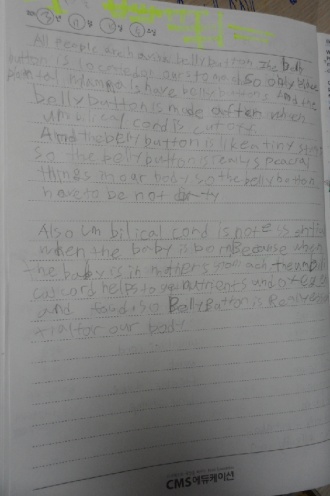 All people are having bellybutton. The belly
button is located at our stomach. So only have
placental mammals have belly buttons. And the
bellybutton is made after when
umbilical cord is cut off.
And the belly button is like a tiny
so the bellybutton is really special
things in our body so the bellybutton
have to be not dirty
Also um bilical cord is not
when the baby is born Because when
the baby is in mother's
cal cord helps to nutrients and
and food. so BellyButton is Really
tial for our body.
CMS에듀케이션